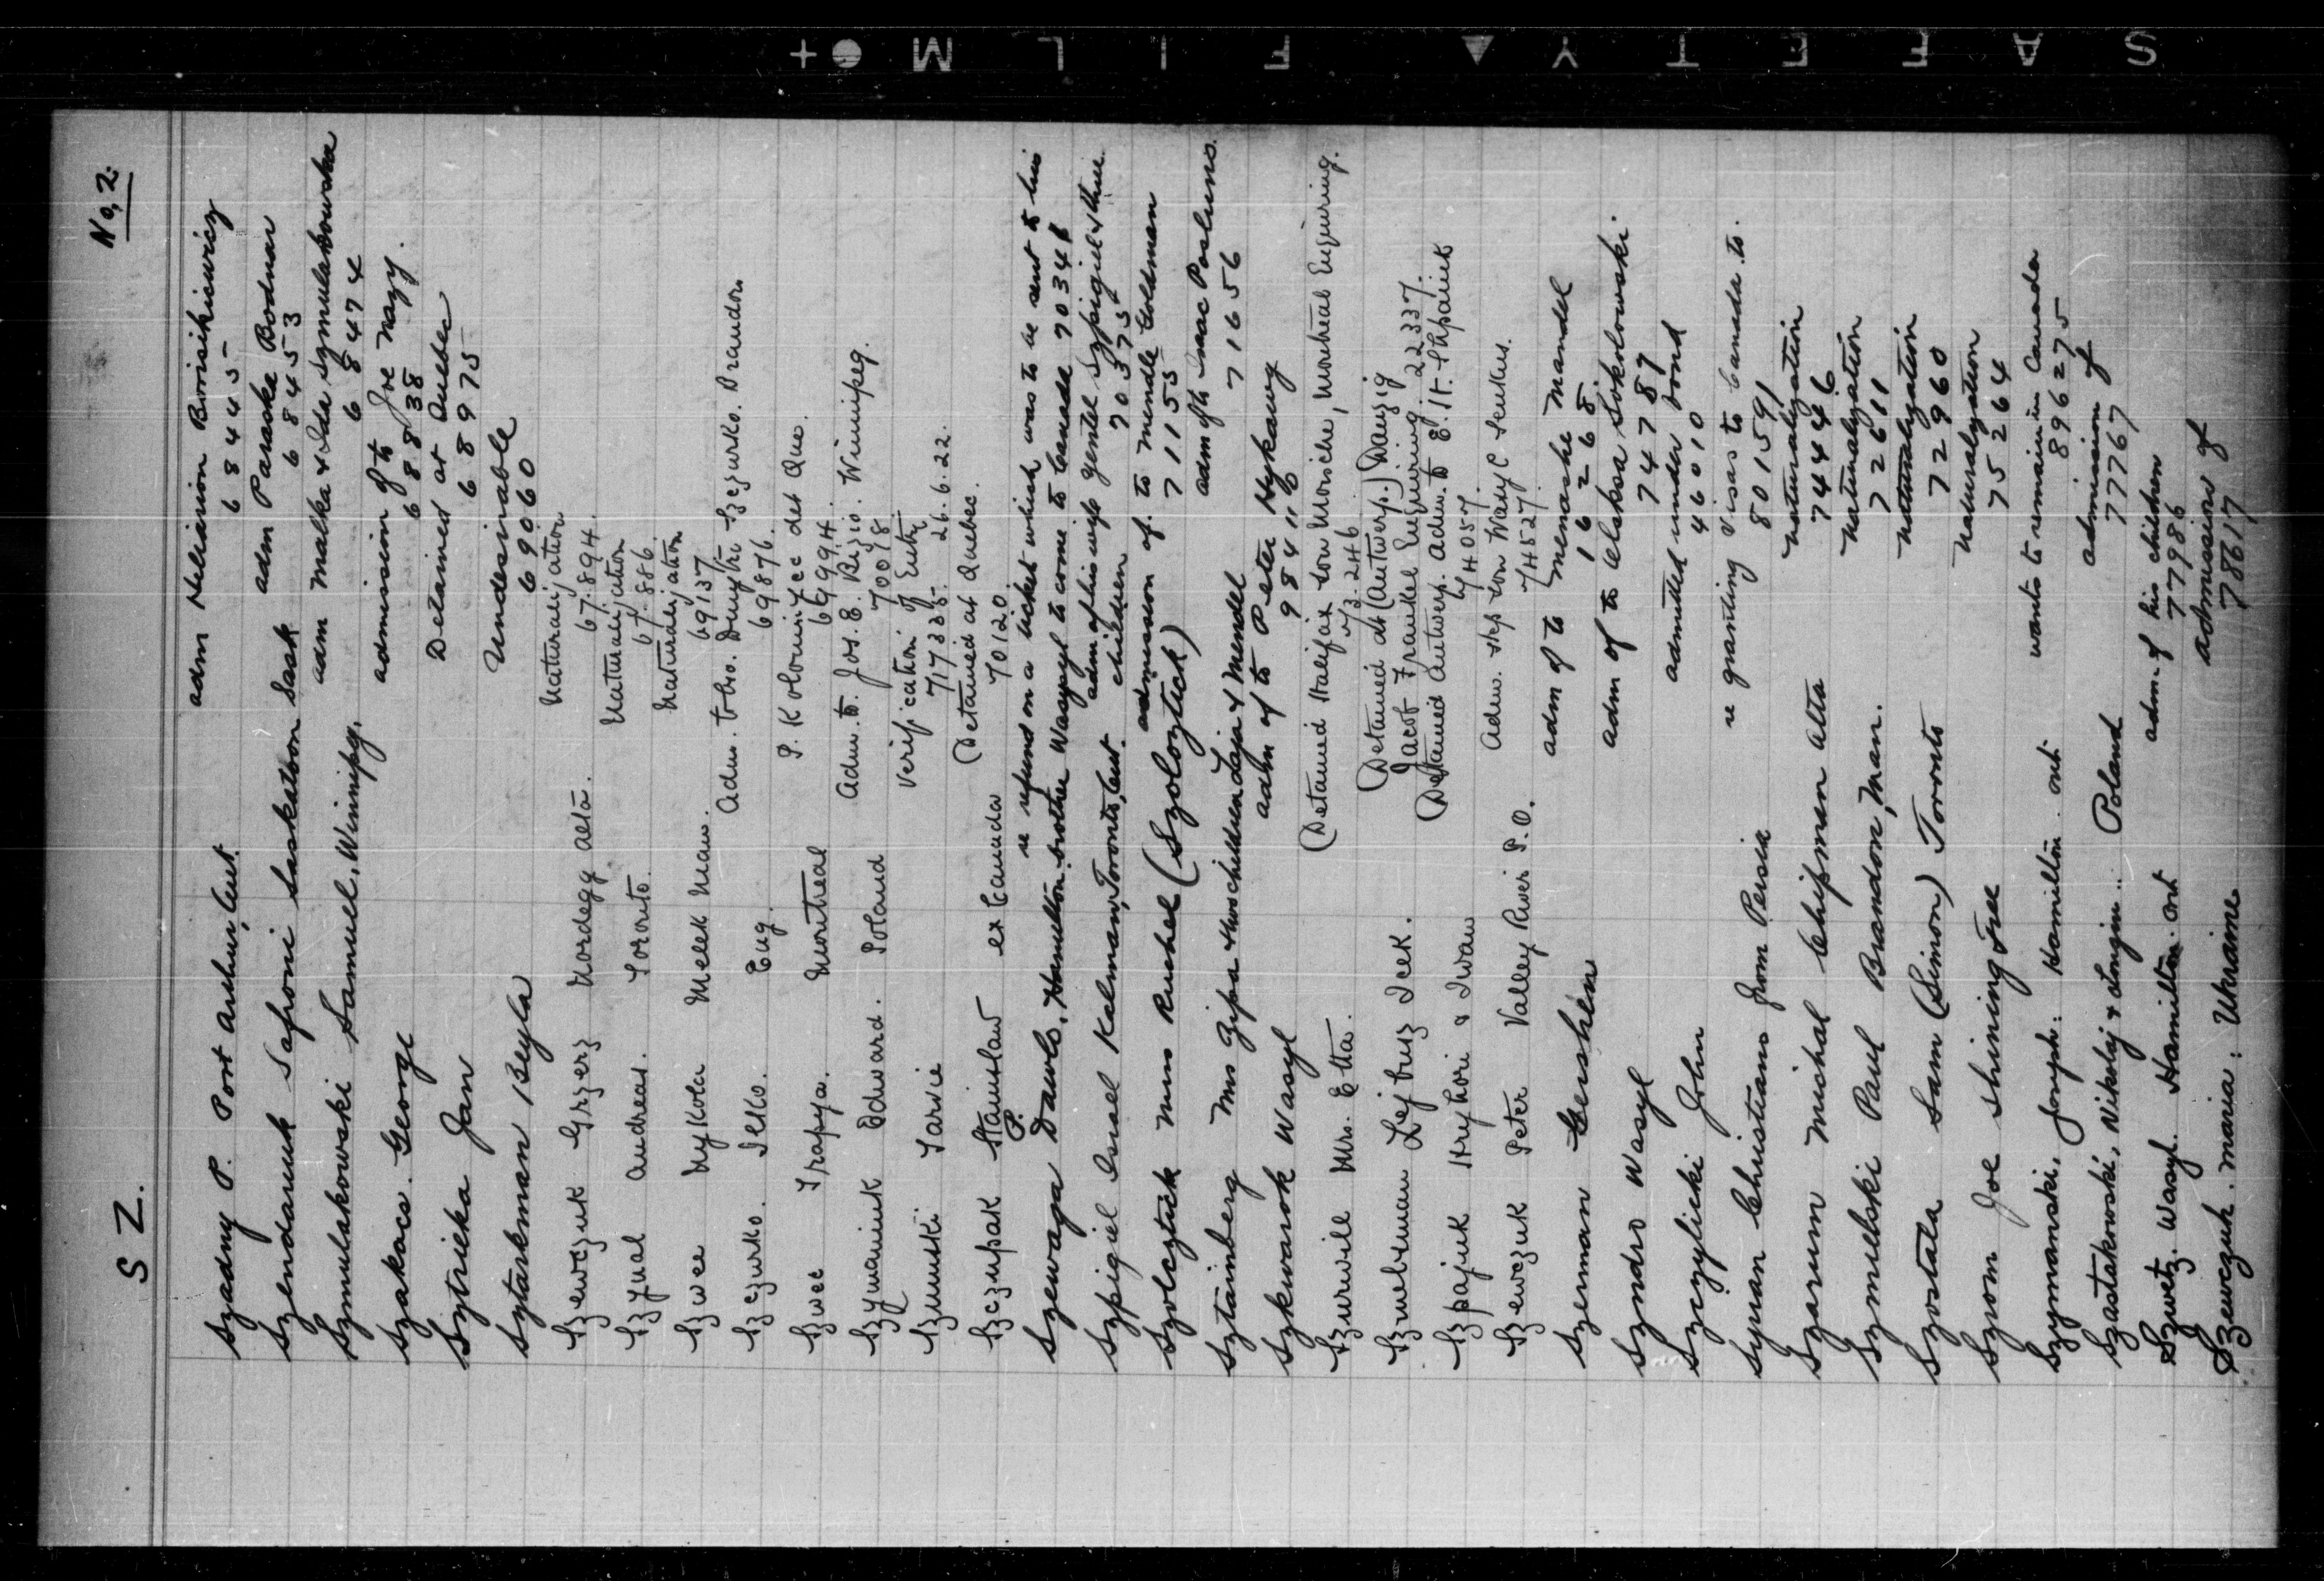 SAFETY FILM
No, 2.
S Z.
Szadny P. Port Arthur, Ont. adm Hellarion Borisikiewicz
68445
Szendaruk Safroni Saskatoon Sask adm Paraska Bodnar
68453
Szmulakowski Samuel, Winnipg. adm Malka & Ida Szmulakowska
68474
Szakacs. George admission of to Joe Nagy.
68838
Sztrieka Jan Detained at Quebec
68975
Sztarkman Beyla Undesirable
69060
Szewczuk Grzerz Nordegg Alta. Naturalization
67.894.
Szynal Andreas. Toronto. Naturalization
67.886.
Szwec Mykola Melek Man. Naturalization
69137
Szczurko. Ilko. Eng. Adm. to bro. Dmytro Szczurko. Brandon
69876.
Szwec Trapya. Montreal P. Kolouniyec det Que.
69994.
Szymaniuk Edward. Poland Adm. to. Jos. E. Rizio. Winnipeg.
70018.
Szmuski Tarvie Verification of Entry
717335. 26.6.22.
Szczupak Stanislaw ex Canada (Detained at Quebec.
70120.
Szewaga Dawlo, P. Hamilton re refund on a ticket which was to be sent to his
brother Wasyl to come to Canada 70348
Szpigiel Israel Kalman, Toronto, Ont. adm of his wife Gentel Szpigiel & three
children 70375
Szolcztick Miss Ruchel (Szoloztick) admission of. to Mendle Goldman
71155
Sztaimberg Mrs Zipa & two children Laja & Mendel adm of to Isaac Posluns.
71656
Szkwarok Wasyl adm of to Peter Hykawy
98411
Szurwill Mrs. Etta. (Detained Halifax son Moische, Montreal Enquiring.
73.246.
Szmelzman Lejbusz Icek. (Detained at (Antwerp.) Danzig
Jacob Frankel Enquiring 22337.
Szpajuk Hryhori & Iwan (Detained Antwerp. Adm. to E. H. Shpaiuk
74057.
Szewczuk Peter Valley River P.O. Adm. step son Wadyl Senkus.
74527.
Szerman Gershen adm of to Menashe Mandel
16268.
Szyndro Wasyl adm of to Aleksa Sokolowski.
74787
Szczylicki John admitted under bond
46010
Syrian Christians from Persia re granting visas to Canada to.
801591
Szarum Michal Chipman Alta Naturalization
74446
Szmulski Paul Brandon, Man. Naturalization
72611
Szostala Sam (Simon) Toronto Naturalization
72960
Szrom Joe Shining Tree Naturalization
75264
Szymanski, Joseph: Hamilton Ont wants to remain in Canada
896275
Szastakowski, Nikolaj & Longin.. Poland admission of
77767
Szwetz. Wasyl. Hamilton. Ont adm. of his children
77986
Szewczuk. Maria: Ukraine admission of
78617